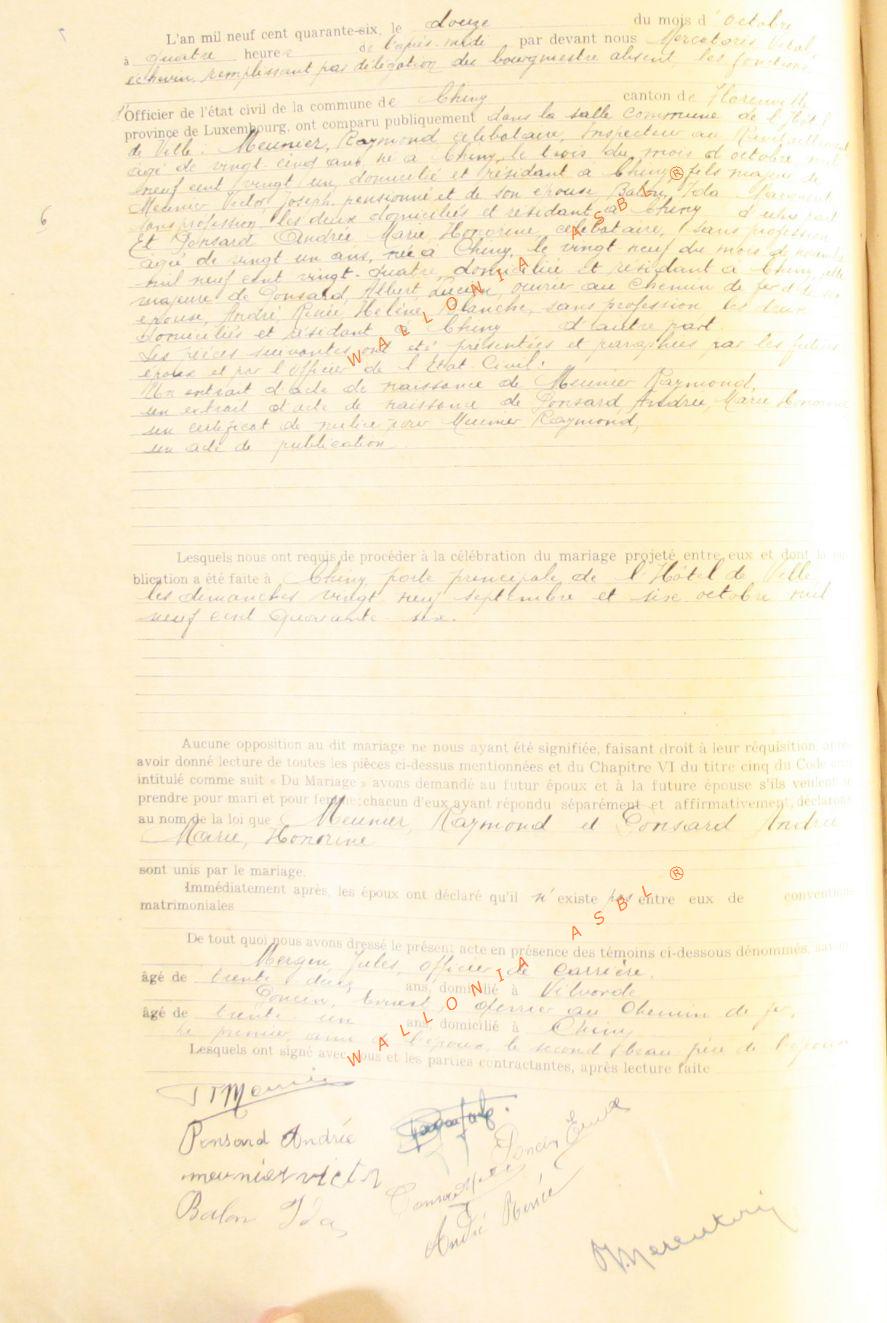 L'an mil neuf cent quarante-six, le douze du mois d'Octobre
à quatre heures de l'après-midi par devant nous Vital
échevin remplissant par délégation du bourgmestre absent, les fonctions
d'Officier de l'état civil de la commune de Chiny canton de Florenville
province de Luxembourg, ont comparu publiquement dans la salle commune de l'Hôtel
de Ville: Meunier, Raymond célibataire, Inspecteur au Ravitaillement
âgé de vingt cinq ans, né à Chiny, le trois du mois d'octobre mil
neuf cent vingt un, domicilié et résidant à Chiny, fils majeur de
Meunier Victor Joseph, pensionné et de son épouse Balon, Ida
sans profession, les deux domiciliés et résidant à Chiny d'une part
Et Ponsard Andrée, Marie, Honorine, célibataire, sans profession,
âgée de vingt un ans, née à Chiny, le vingt neuf du mois de novembre
mil neuf cent vingt-quatre, domiciliée et résidant à Chiny, fille
majeure de Ponsard, Albert, Lucien, ouvrier au Chemin de fer et de son
épouse, André, Renée, Hélène, Blanche, sans profession les deux
domiciliés et résidant à Chiny d'autre part.
Les pièces suivantes ont été présentées et paraphées par les futurs
époux et par l'Officier de l'Etat Civil.
Un extrait d'acte de naissance de Meunier Raymond,
un extrait d'acte de naissance de Ponsard, Andrée, Marie Honorine
un certificat de milice pour Meunier Raymond,
un acte de publication
6
Lesquels nous ont requis de procéder à la célébration du mariage projeté entre eux et dont la pu-
blication a été faite à Chiny porte principale de l'Hôtel de Ville,
les dimanches vingt neuf septembre et six octobre mil
neuf cent quarante-six.
Aucune opposition au dit mariage ne nous ayant été signifiée, faisant droit à leur réquisition, après
avoir donné lecture de toutes les pièces ci-dessus mentionnées et du Chapitre VI du titre cinq du Code civil
intitulé comme suit « Du Mariage » avons demandé au futur époux et à la future épouse s'ils veulent se
prendre pour mari et pour femme: chacun d'eux ayant répondu séparément et affirmativement, déclarons
au nom de la loi que Meunier, Raymond et Ponsard Andrée
Marie, Honorine
sont unis par le mariage.
Immédiatement après, les époux ont déclaré qu'il n'existe pas entre eux de conventions
matrimoniales
De tout quoi nous avons dressé le présent acte en présence des témoins ci-dessous dénommés, savoir
Mergen, Jules, officier de carrière,
âgé de trente deux ans, domicilié à Vilvorde
Poncin, Ernest, ouvrier au Chemin de fer,
âgé de trente un ans, domicilié à Chiny
le premier, ami de l'époux, le second, beau frère de l'époux
Lesquels ont signé avec nous et les parties contractantes, après lecture faite
Meunier
Ponsard Andrée
Poncin Ernest
meunier victor
Balon Ida
André Renée
WALLONIA ASBL ®
WALLONIA ASBL ®